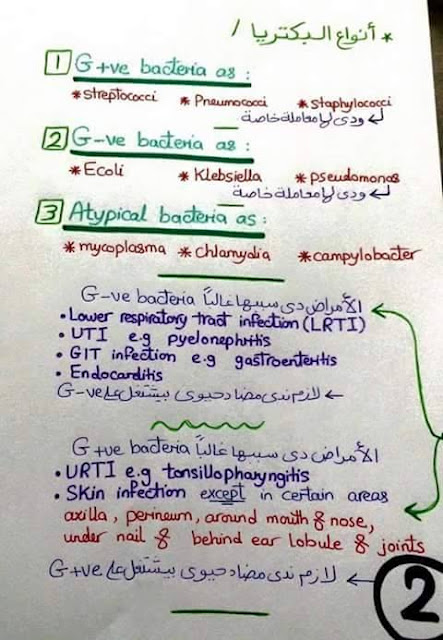 * أنواع البكتريا /
1 G+ve bacteria as :
*streptococci *Pneumococci *staphylococci
ودى ليها معاملة خاصة
2 G-ve bacteria as :
*Ecoli *Klebsiella *pseudomonas
ودى ليها معاملة خاصة
3 Atypical bacteria as :
*mycoplasma *chlamydia *campylobacter
الأمراض دى سببها غالباً G-ve bacteria
• Lower respiratory tract infection (LRTI)
• UTI e.g pyelonephritis
• GIT infection e.g gastroenteritis
• Endocarditis
← لازم ندى مضاد حيوى بيشتغل على G-ve
الأمراض دى سببها غالباً G+ve bacteria
• URTI e.g tonsillopharyngitis
• Skin infection except in certain areas
axilla, perineum, around mouth & nose,
under nail & behind ear lobule & joints
← لازم ندى مضاد حيوى بيشتغل على G+ve
2